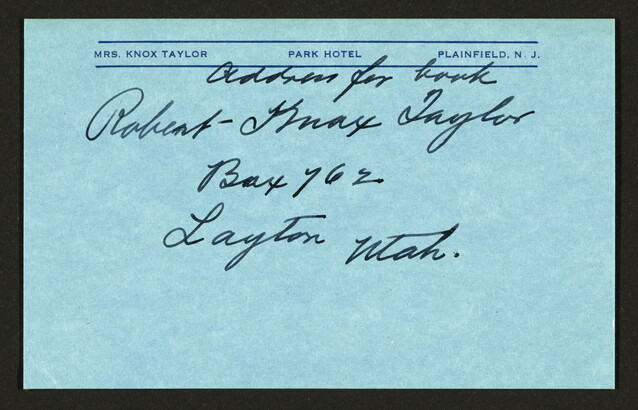 MRS. KNOX TAYLOR PARK HOTEL PLAINFIELD, N. J.
Address for book
Robert Knox Taylor
Box 762
Layton Utah.